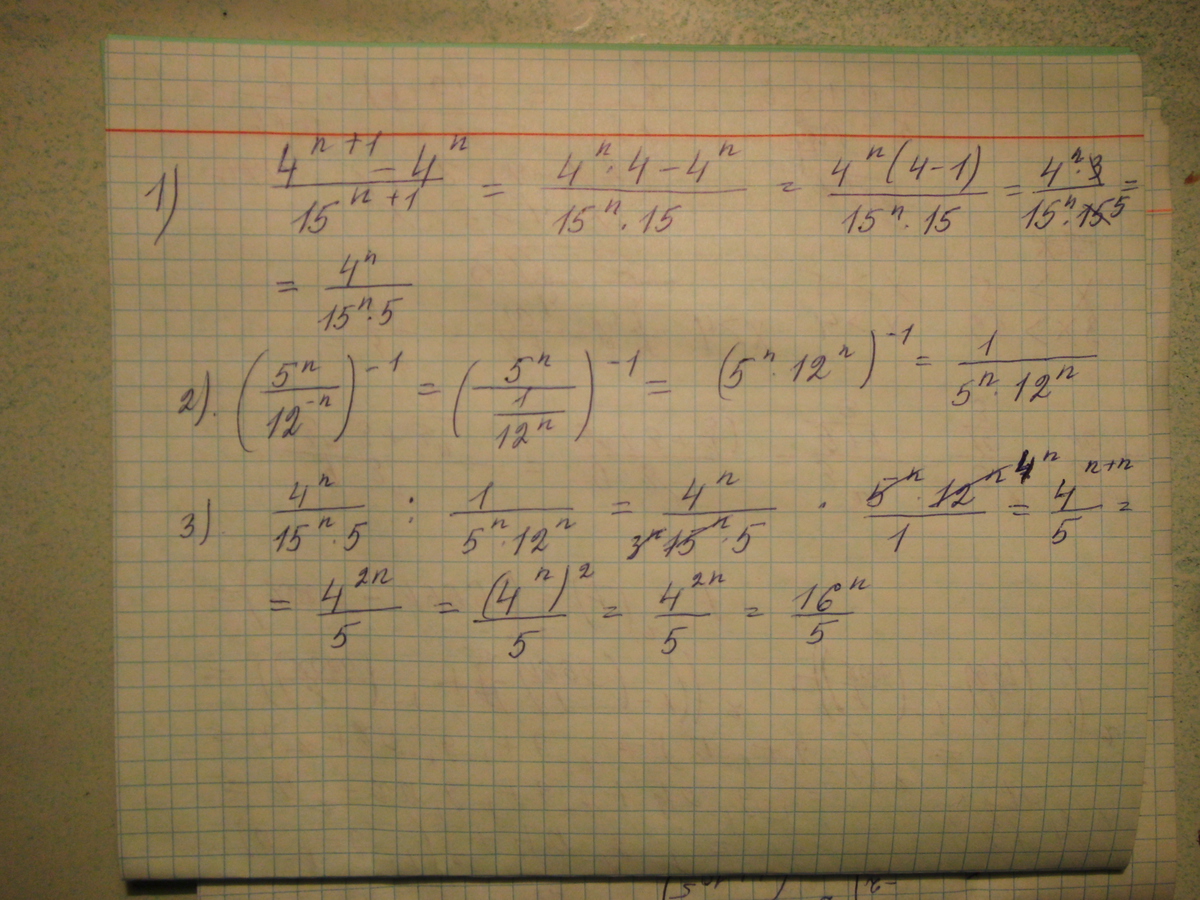 1) \frac{4^{n+1} - 4^n}{15^{n+1}} = \frac{4^n \cdot 4 - 4^n}{15^n \cdot 15} = \frac{4^n (4-1)}{15^n \cdot 15} = \frac{4^n \cdot \cancel{3}}{15^n \cdot \cancel{15} 5} =
= \frac{4^n}{15^n \cdot 5}
2). \left( \frac{5^n}{12^{-n}} \right)^{-1} = \left( \frac{5^n}{\frac{1}{12^n}} \right)^{-1} = (5^n \cdot 12^n)^{-1} = \frac{1}{5^n \cdot 12^n}
3) \frac{4^n}{15^n \cdot 5} : \frac{1}{5^n \cdot 12^n} = \frac{4^n}{3^n \cancel{15^n} \cdot 5} \cdot \frac{\cancel{5^n} \cdot \cancel{12^n} 4^n}{1} = \frac{4^{n+n}}{5} =
= \frac{4^{2n}}{5} = \frac{(4^n)^2}{5} = \frac{4^{2n}}{5} = \frac{16^n}{5}